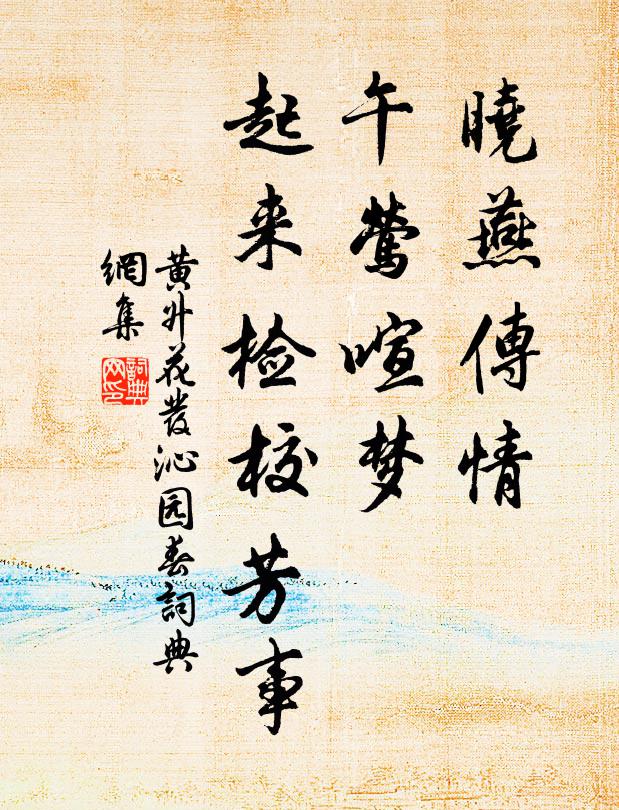 曉燕傳情
午鶯喧夢
起来檢校芳事
黄升花發沁园春詞典
網集
詞典
网印